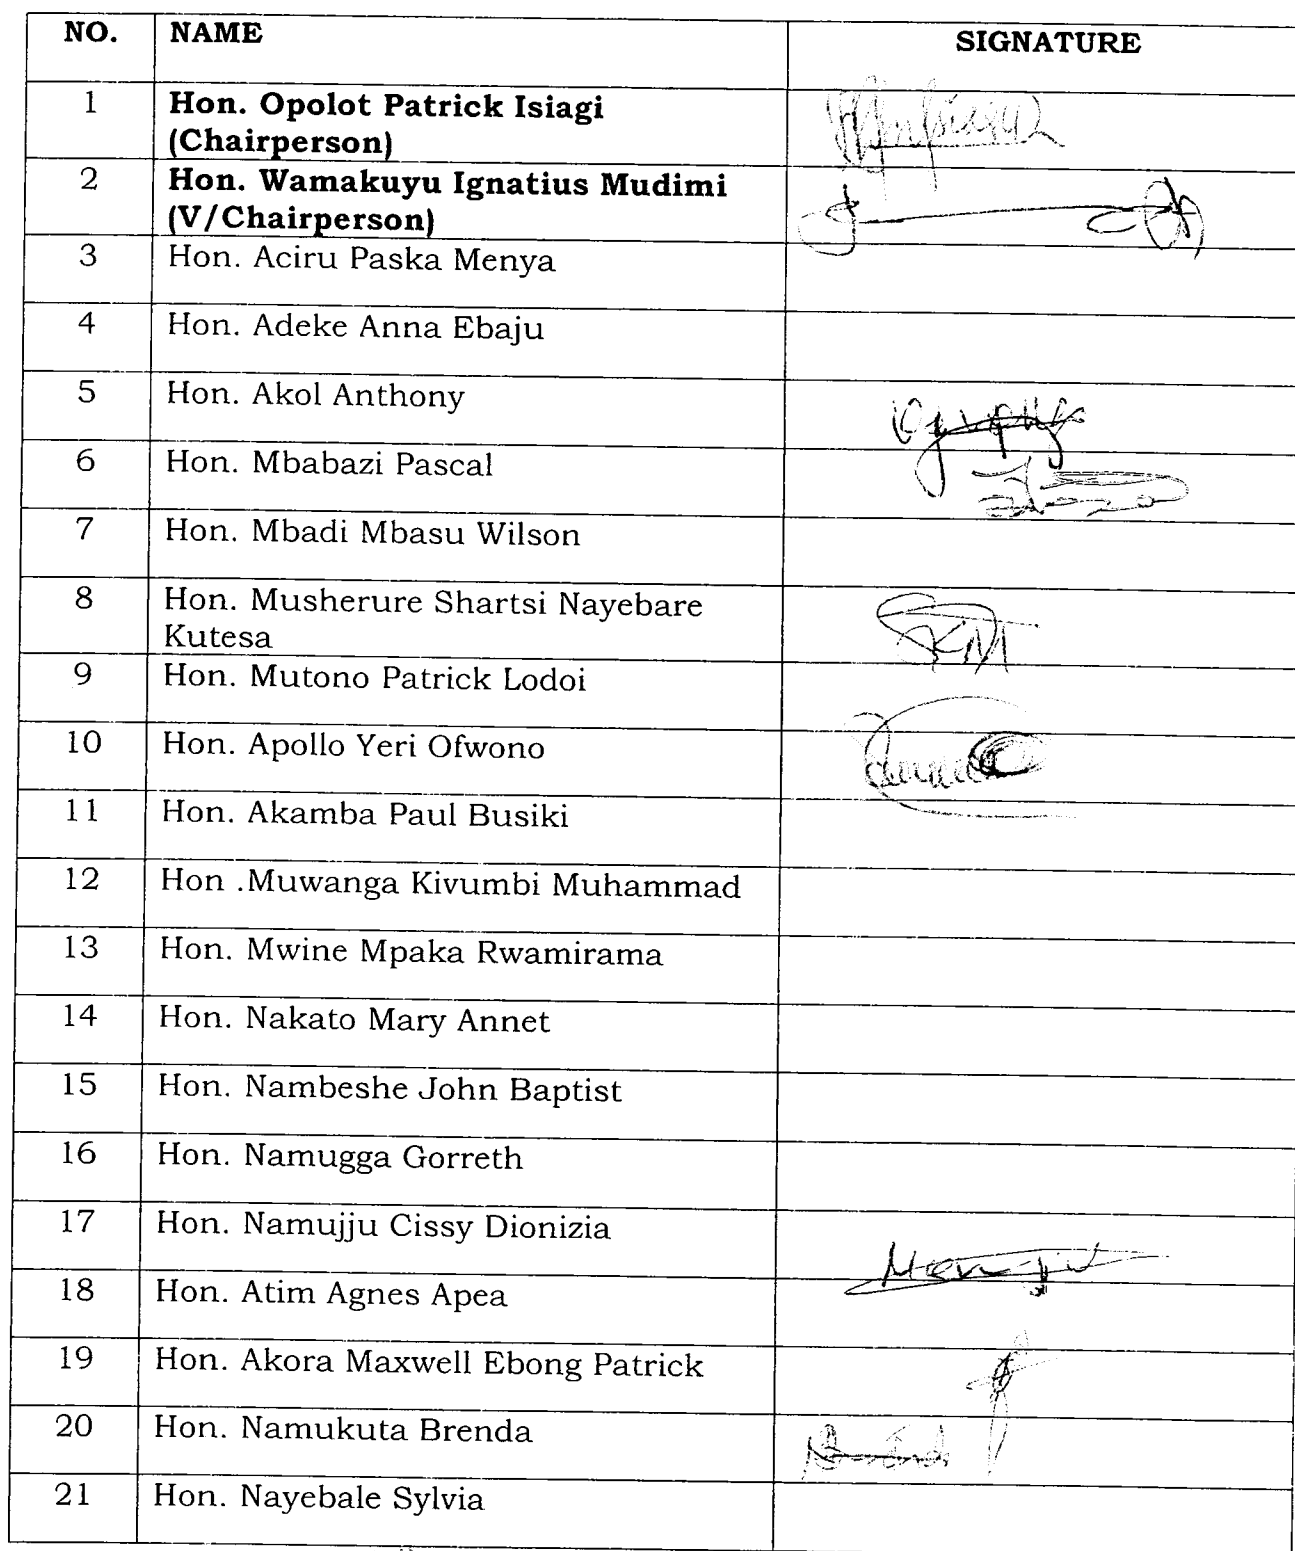 NO. NAME SIGNATURE
1 Hon. Opolot Patrick Isiagi
(Chairperson)
2 Hon. Wamakuyu Ignatius Mudimi
(V/Chairperson)
3 Hon. Aciru Paska Menya
4 Hon. Adeke Anna Ebaju
5 Hon. Akol Anthony
6 Hon. Mbabazi Pascal
7 Hon. Mbadi Mbasu Wilson
8 Hon. Musherure Shartsi Nayebare
Kutesa
9 Hon. Mutono Patrick Lodoi
10 Hon. Apollo Yeri Ofwono
11 Hon. Akamba Paul Busiki
12 Hon .Muwanga Kivumbi Muhammad
13 Hon. Mwine Mpaka Rwamirama
14 Hon. Nakato Mary Annet
15 Hon. Nambeshe John Baptist
16 Hon. Namugga Gorreth
17 Hon. Namujju Cissy Dionizia
18 Hon. Atim Agnes Apea
19 Hon. Akora Maxwell Ebong Patrick
20 Hon. Namukuta Brenda
21 Hon. Nayebale Sylvia